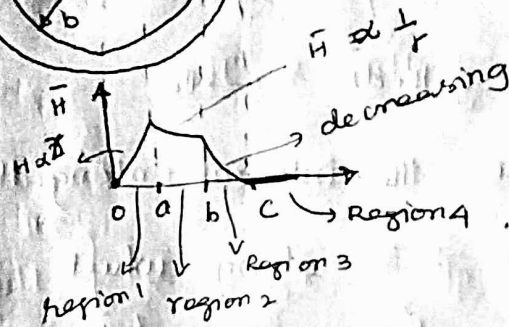 b
H̄ ∝ 1/r
H̄
decreasing
H∝
0 a b C
Region 4
Region 3
region 1 region 2